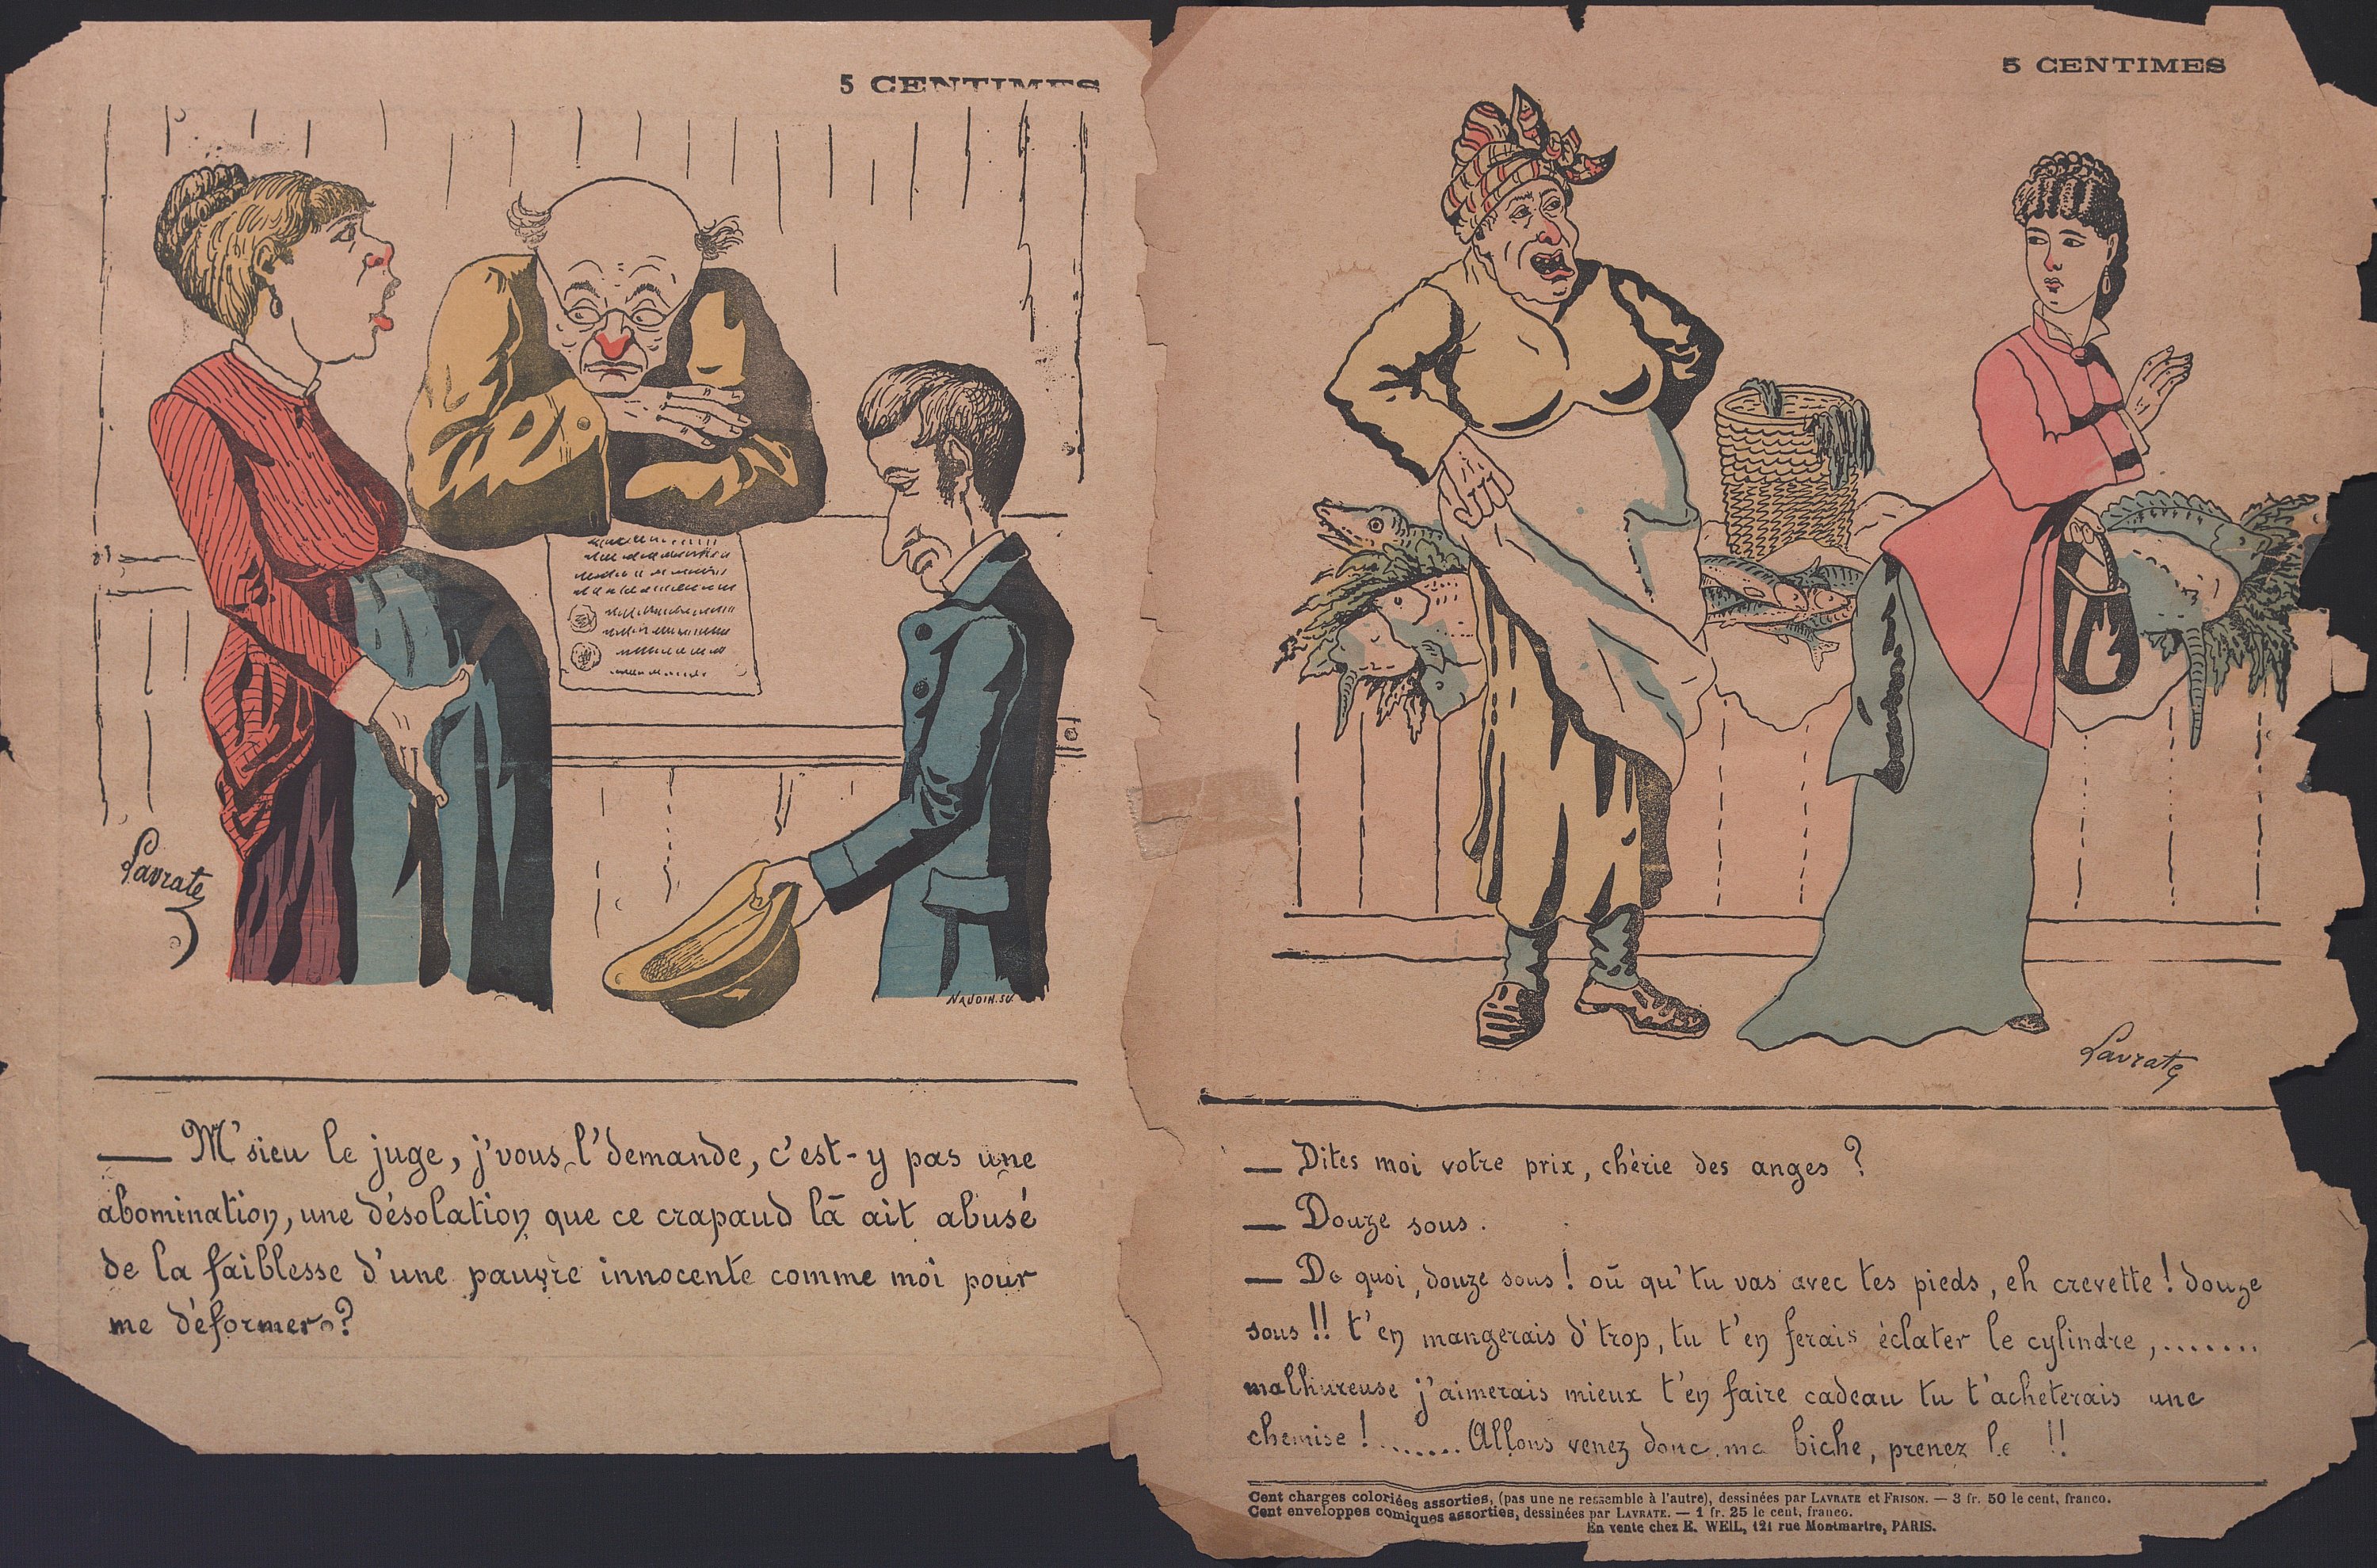 5 CENTIMES
Lavrate
NAUDIN.SC
— M'sieu le juge, j'vous l'demande, c'est-y pas une
abomination, une désolation que ce crapaud là ait abusé
de la faiblesse d'une pauvre innocente comme moi pour
me déformer ?
5 CENTIMES
Lavrate
— Dites moi votre prix, chérie des anges ?
— Douze sous.
— De quoi, douze sous ! où qu'tu vas avec tes pieds, eh crevette ! douze
sous !! t'en mangerais d'trop, tu t'en ferais éclater le cylindre,.......
malhureuse j'aimerais mieux t'en faire cadeau tu t'acheterais une
chemise !.......Allons venez donc ma biche, prenez le !!
Cent charges coloriées assorties, (pas une ne ressemble à l'autre), dessinées par LAVRATE et FRISON. — 3 fr. 50 le cent, franco.
Cent enveloppes comiques assorties, dessinées par LAVRATE. — 1 fr. 25 le cent, franco.
En vente chez E. WEIL, 121 rue Montmartre, PARIS.